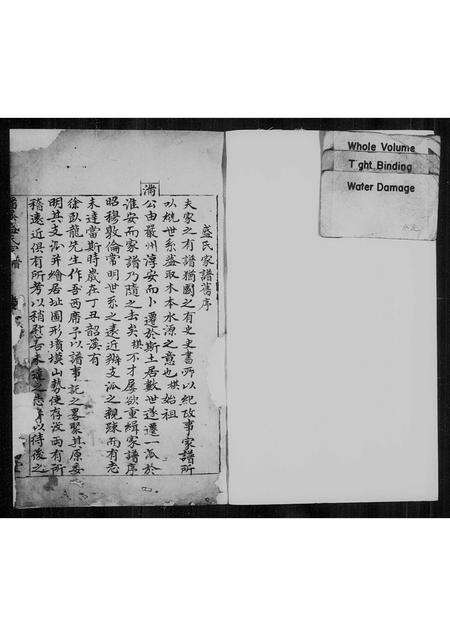 Whole Volume
Tight Binding
Water Damage
盛氏家譜舊序
夫家之有譜猶國之有史史書所以紀故事家譜所
以統世系盖取木本水源之意也棋始祖
滿
公由嚴州淳安而卜遷於斯土居數世遂遷一派於
淮安而家譜乃隨之去矣棋不才屡欲重緝家譜序
昭穆敦倫常明世系之遠近辨支派之親疎而有志
未達當斯時歲在丁丑韶溪有
徐臥龍先生作吾西席予以譜事託之畧聚其原委
明其支派并繪居址圖形墳墓山勢使存没两有所
稽遠近俱有所考以稍慰吾未達之志予以待後之